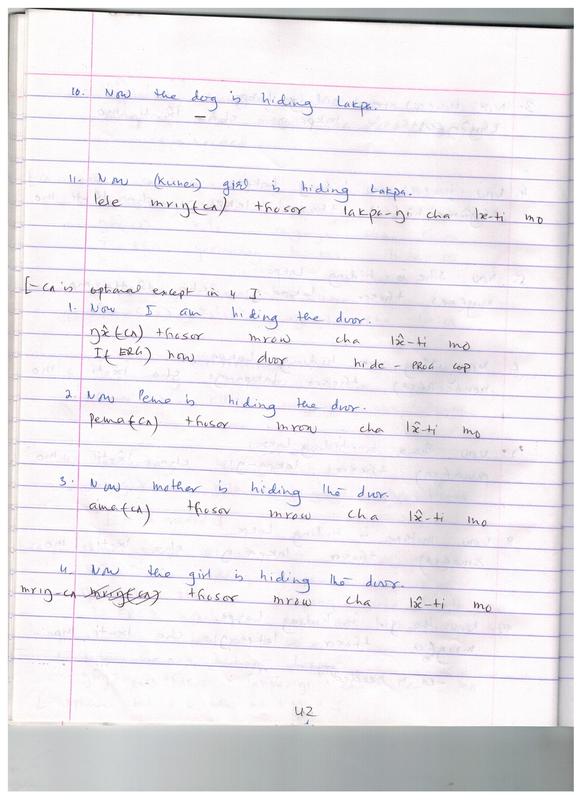 10. Now the dog is hiding Lakpa.
11. Now (Kunei) girl is hiding Lakpa.
lese mrɪŋ(-cʌ) tɦosor lakpa-ŋi cha lx-ti mo
[-cʌ is optional except in 4].
1. Now I am hiding the door.
ŋx̂(-cʌ) tɦosor mrow cha lx̂-ti mo
I(ERG) now door hide - PROG cop
2. Now Pema is hiding the door.
pema(-cʌ) tɦosor mrow cha lx̂-ti mo
3. Now mother is hiding the door.
ama(-cʌ) tɦosor mrow cha lx̂-ti mo
4. Now the girl is hiding the door.
mrɪŋ-cʌ tɦosor mrow cha lx̂-ti mo
42